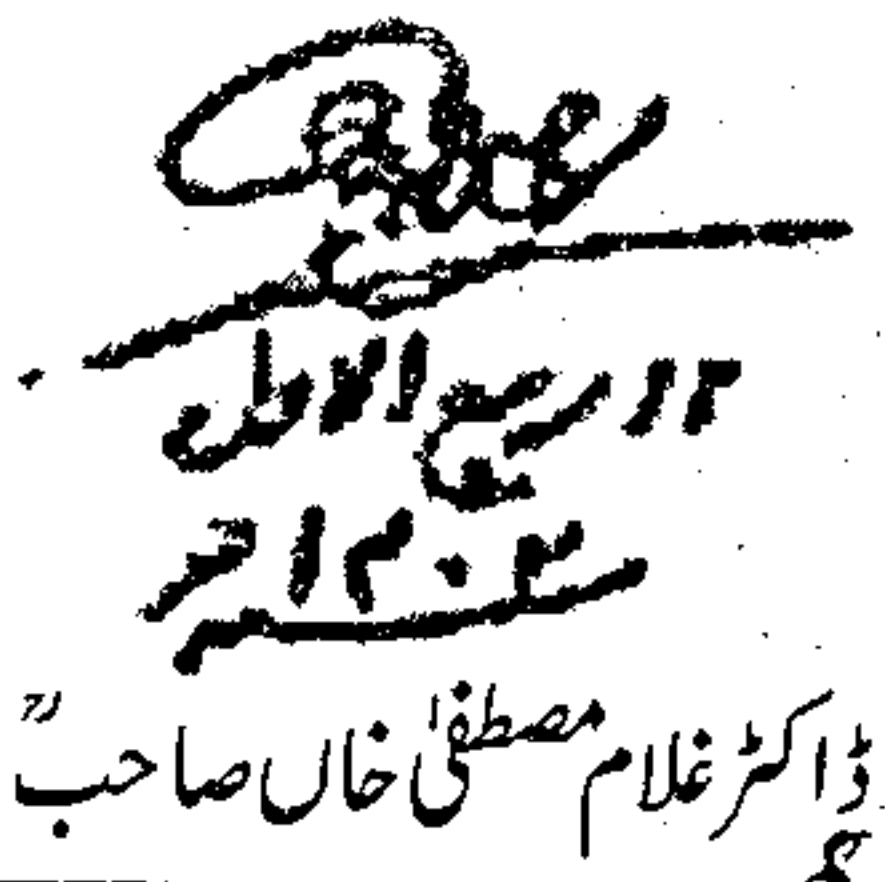 ۱۲ ربیع الاول
۱۴۰۳ھ
ڈاکٹر غلام مصطفیٰ خاں صاحبؒ